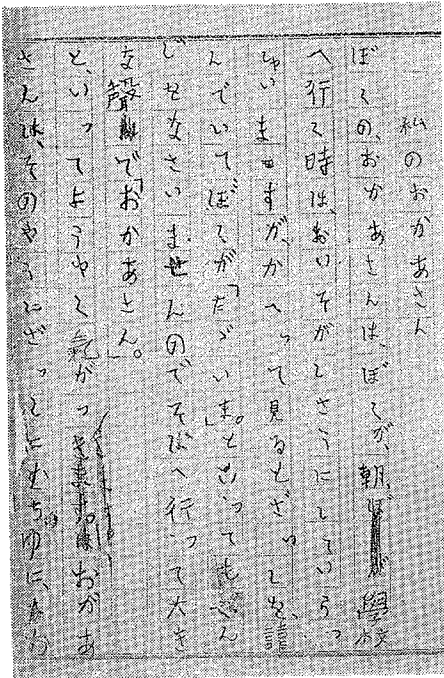 私のおかあさん
ぼくの、おかあさんは、ぼくが、朝、學校
へ行く時は、おいそがしさうにしていらっ
しゃいますが、かへって見るとざっしを、讀
んでいて、ぼくが「たゞいま」。と言っても
じをなさいませんのでそばへ行って大き
な聲で「おかあさん。」
と、いってようやく氣がつ おかあ
さんは、そのやうにざっしにむちゅに、